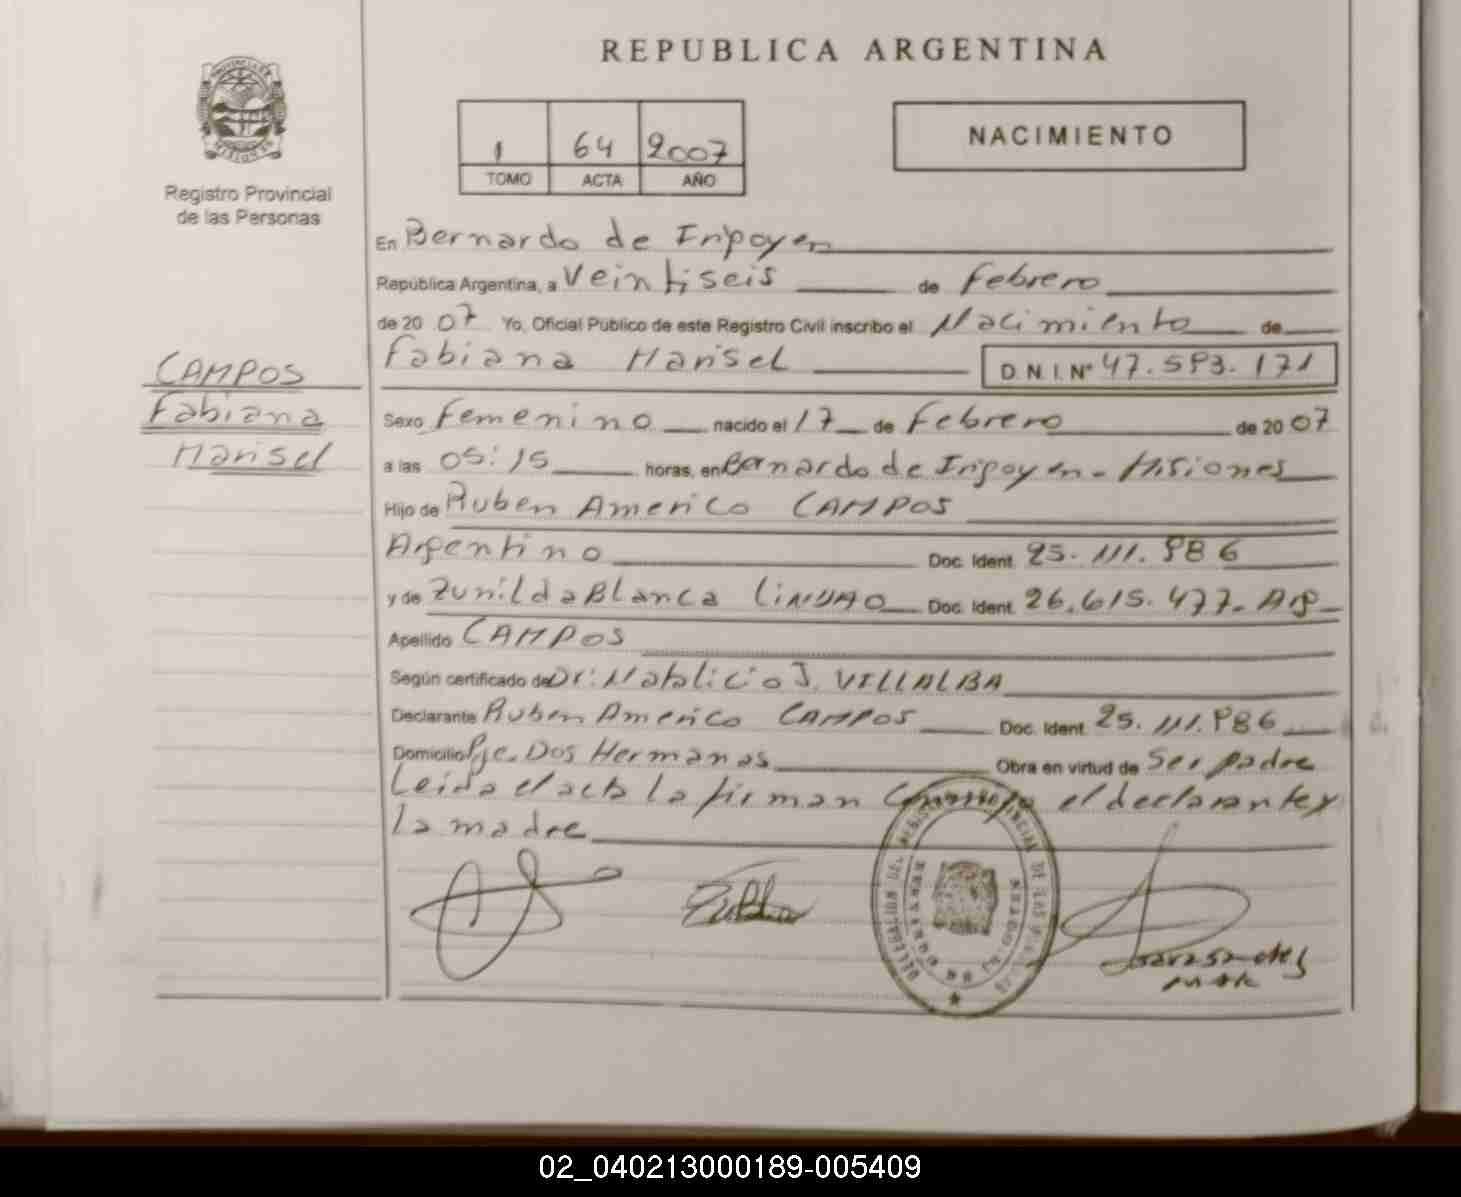 REPUBLICA ARGENTINA
PROVINCIA DE MISIONES
Registro Provincial
de las Personas
1 64 2007
TOMO ACTA AÑO
NACIMIENTO
En Bernardo de Irigoyen
República Argentina, a Veintiseis de Febrero
de 20 07 Yo, Oficial Público de este Registro Civil inscribo el Nacimiento de
Fabiana Marisel D.N.I. Nº 47.593.171
CAMPOS
Fabiana
Marisel
Sexo Femenino nacido el 17 de Febrero de 20 07
a las 05:15 horas, en Bernardo de Irigoyen - Misiones
Hijo de Ruben Americo CAMPOS
Argentino Doc. Ident. 25.111.986
y de Zunilda Blanca Doc. Ident. 26.615.477. Arg
Apellido CAMPOS
Según certificado de Dr: Natalicio J. VILLALBA
Declarante Ruben Americo CAMPOS Doc. Ident. 25.111.986
Domicilio Pje. Dos Hermanas Obra en virtud de Ser padre
Leida el acta la firman Conmigo el declarante y
la madre
02_040213000189-005409